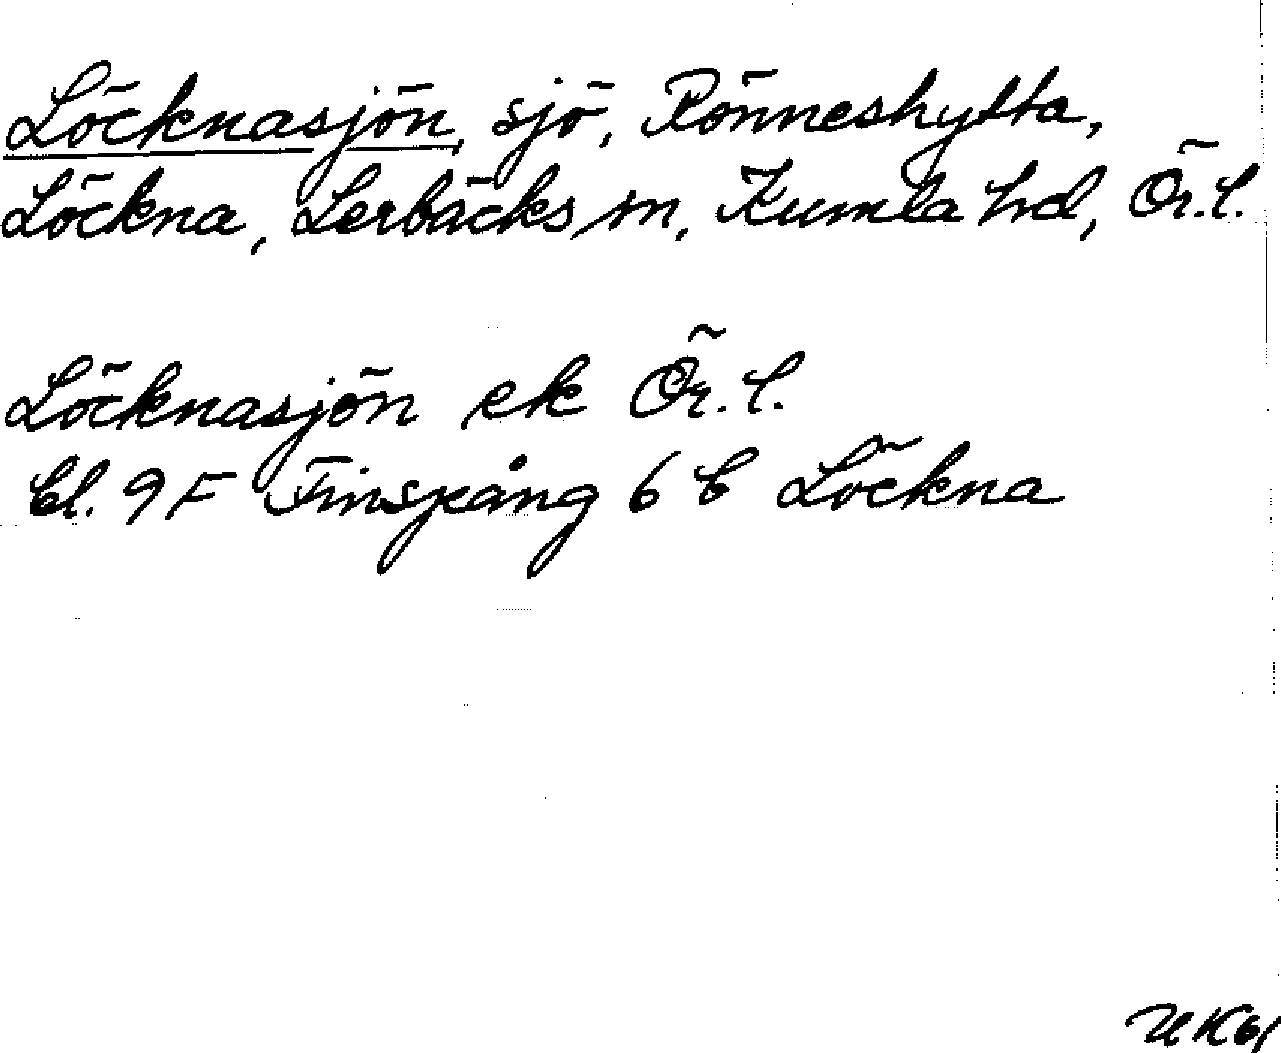 Löcknasjön, sjö, Rönneshytta,
Löckna, Lerbäcks sn, Kumla hd, Ör. l.
Löcknasjön ek Ör. l.
bl. 9F Finspång 6 b Löckna
UK61